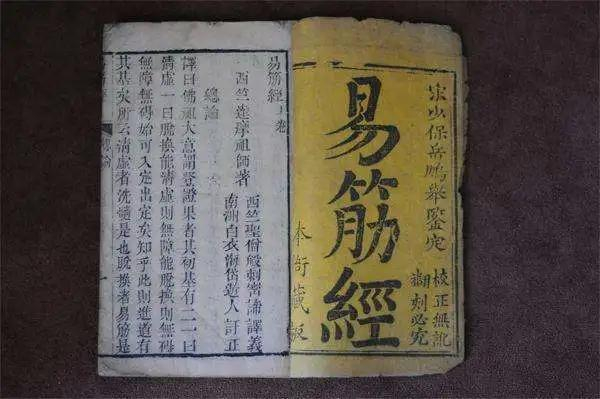 宋少保岳鵬舉鑒定
校正無訛
翻刻必究
易筋經
本衙藏版
易筋經上卷
西竺達摩祖師著
西竺聖僧般剌密諦譯義
南洲白衣海岱遊人訂正
總論
譯曰佛祖大意謂登證果者其初基有二一曰
清虛一曰脫換能清虛則無障能脫換則無碍
無障無碍始可入定出定矣知乎此則進道有
總論
其基矣所云清虛者洗髓是也脫換者易筋是